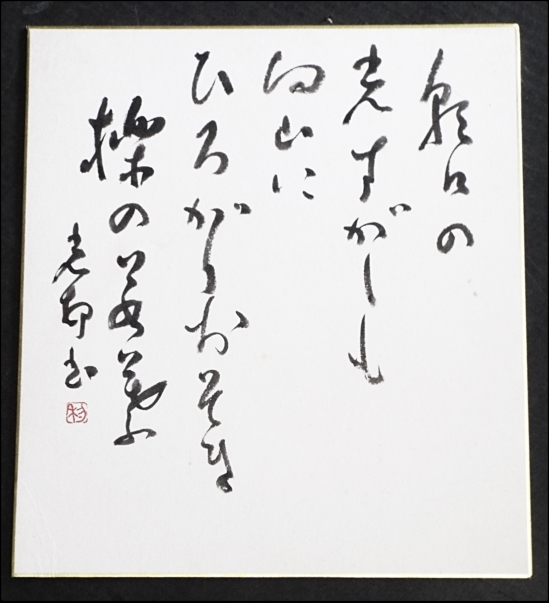 朝日の
光すがしも
向山に
ひろがりおそき
櫟の若葉